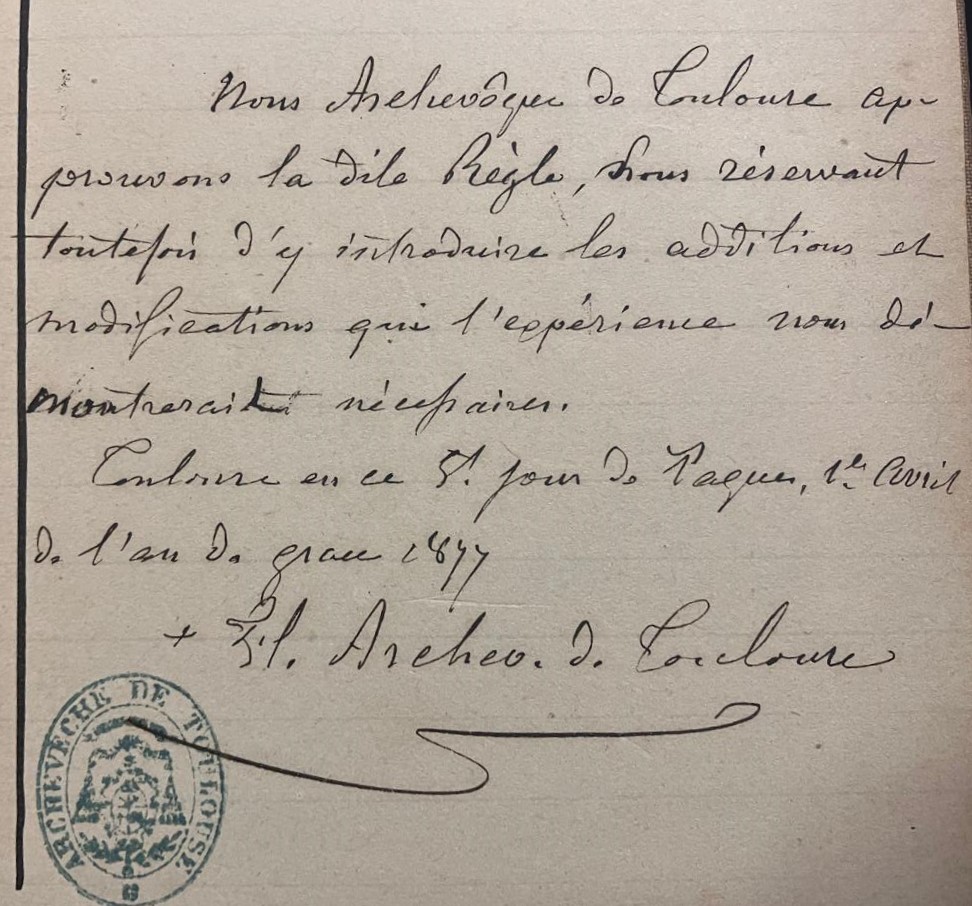 Nous Archevêque de Toulouse ap-
prouvons la dite Règle, Nous réservant
toutefois d'y introduire les additions et
modifications que l'expérience nous dé-
montrerait nécessaires.
Toulouse en ce St. jour de Paques, 1er Avril
de l'an de grace 1877
+ Fl. Archev. de Toulouse
ARCHEVÊCHÉ DE TOULOUSE